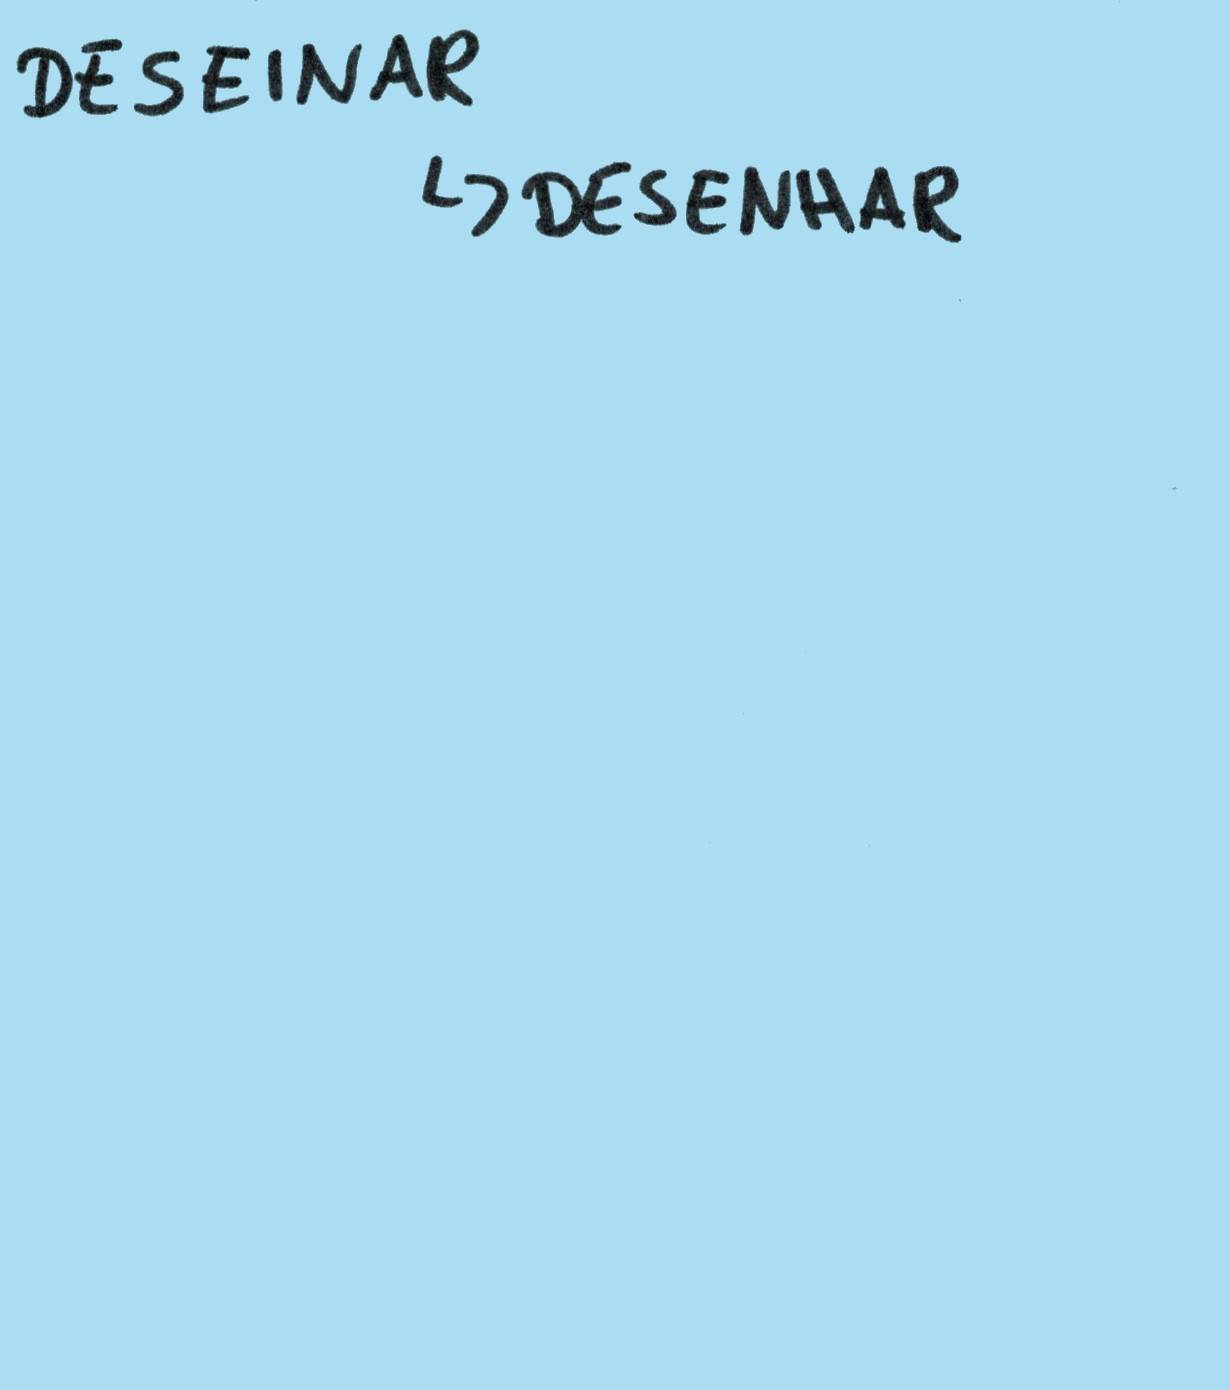 DESEINAR
↳ DESENHAR